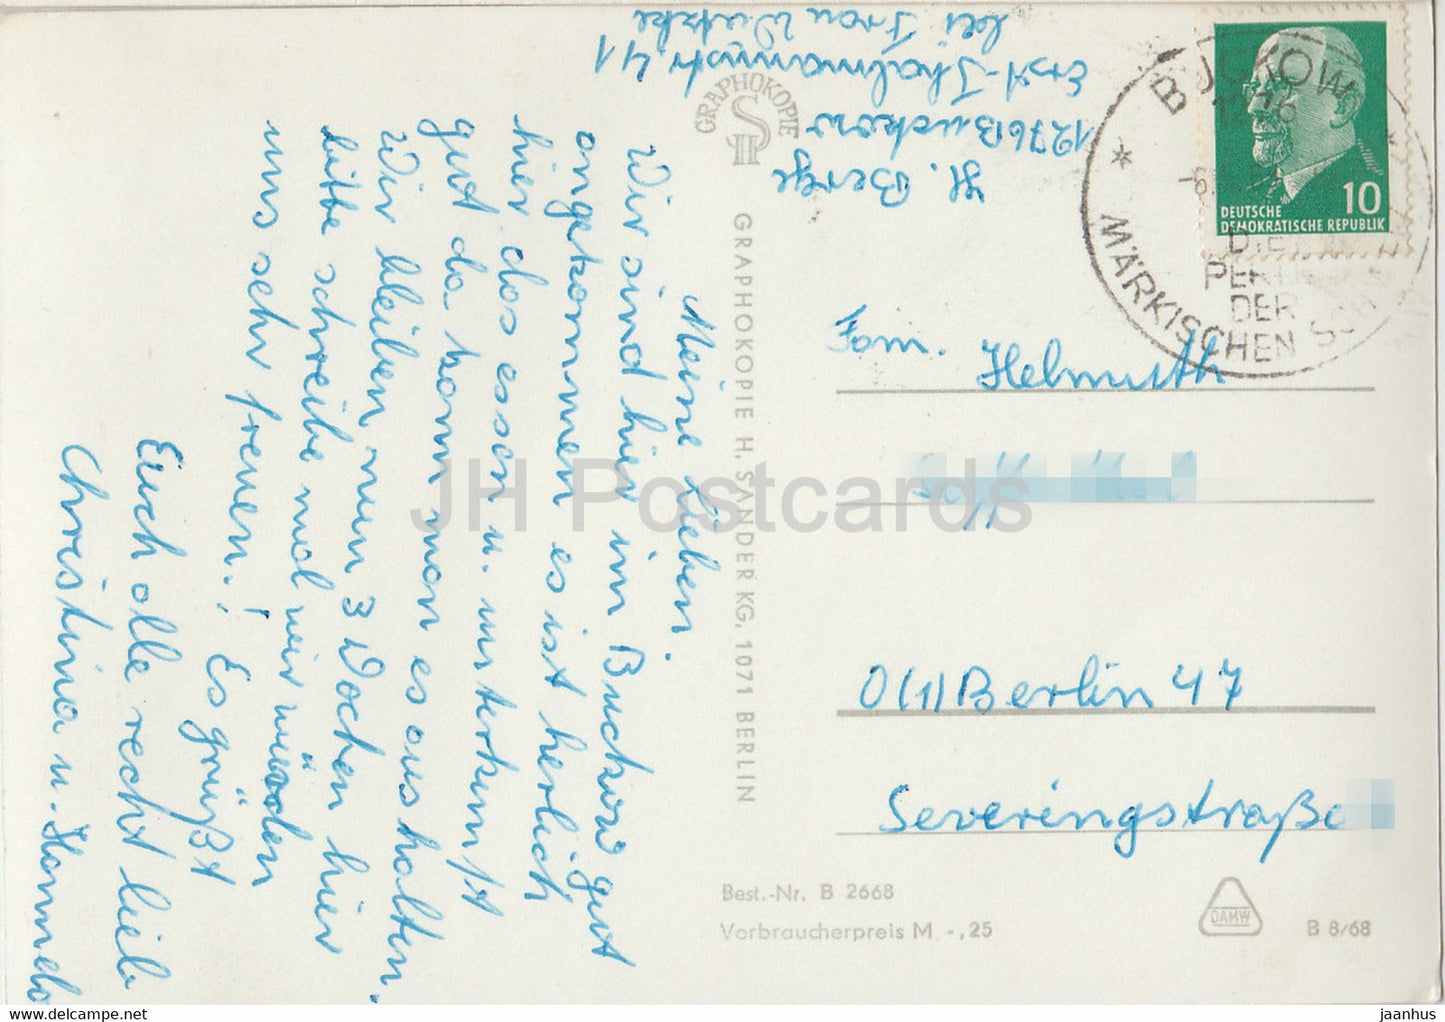 H. Berge
1276 Buckow
Ernst-Thälmannstr. 41
bei Frau
GRAPHOKOPIE
H S
BUCKOW
MÄRKISCHEN
DIE
PERLE
DER
10
DEUTSCHE
DEMOKRATISCHE REPUBLIK
Meine Lieben.
Wir sind hier im Buckow gut
angekommen es ist herlich
hier das essen u. unterkunft
gut da kann man es aushalten.
Wir bleiben nun 3 Wochen hier
bitte schreibe mal wir würden
uns sehr freuen! Es grüßt
Euch alle recht lieb
Christina u.
GRAPHOKOPIE H. SANDER KG, 1071 BERLIN
Fam. Helmuth
0(1)Berlin 47
Severingstraße
Best.-Nr. B 2668
Verbraucherpreis M -,25
DAMW
B 8/68
JH Postcards
www.delcampe.net
jaanhus